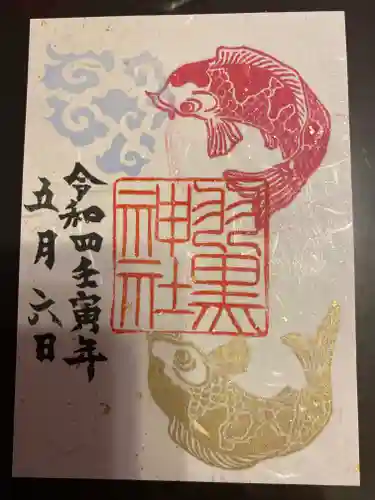 羽黒
神社
令和四壬寅年
五月六日